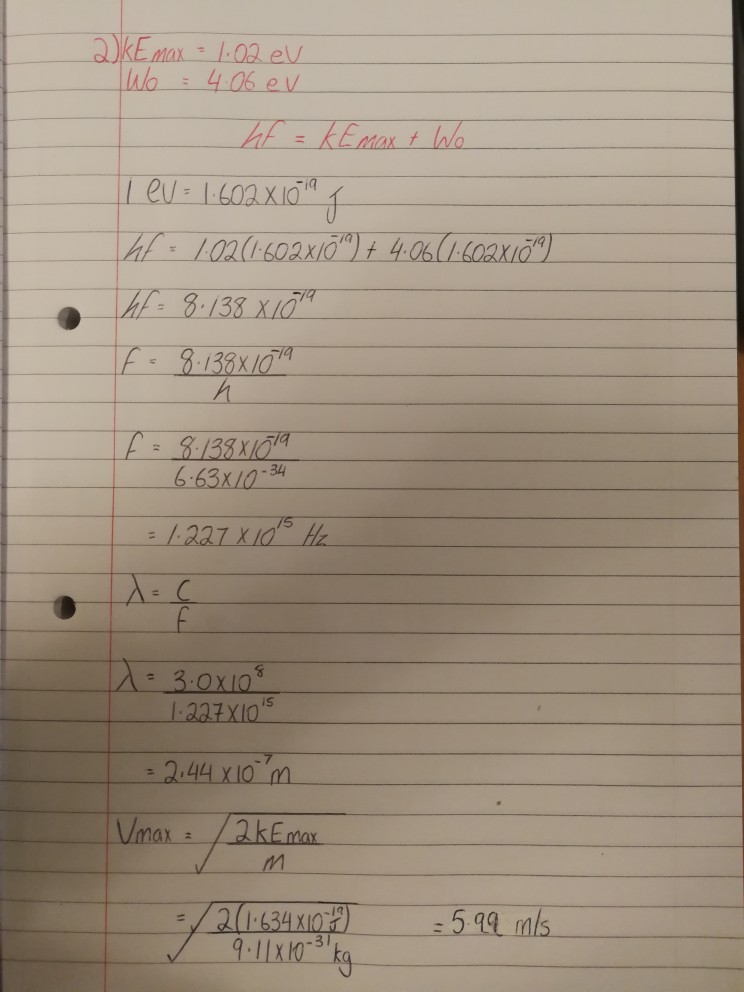 2) KE max = 1.02 eV
Wo = 4.06 eV
hf = KE max + Wo
1 eV = 1.602 x 10⁻¹⁹ J
hf = 1.02(1.602x10⁻¹⁹) + 4.06(1.602x10⁻¹⁹)
hf = 8.138 x10⁻¹⁹
f = 8.138x10⁻¹⁹
h
f = 8.138x10⁻¹⁹
6.63x10⁻³⁴
= 1.227 x 10¹⁵ Hz
λ = c
f
λ = 3.0x10⁸
1.227x10¹⁵
= 2.44 x10⁻⁷ m
Vmax = √ 2KE max
m
= √ 2(1.634x10⁻¹⁹ J) = 5.99 m/s
9.11x10⁻³¹ kg